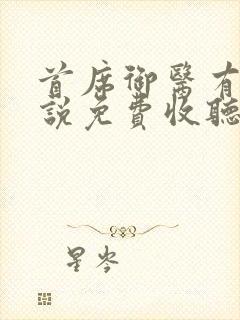 首席御醫有
說免費收聽
星岑